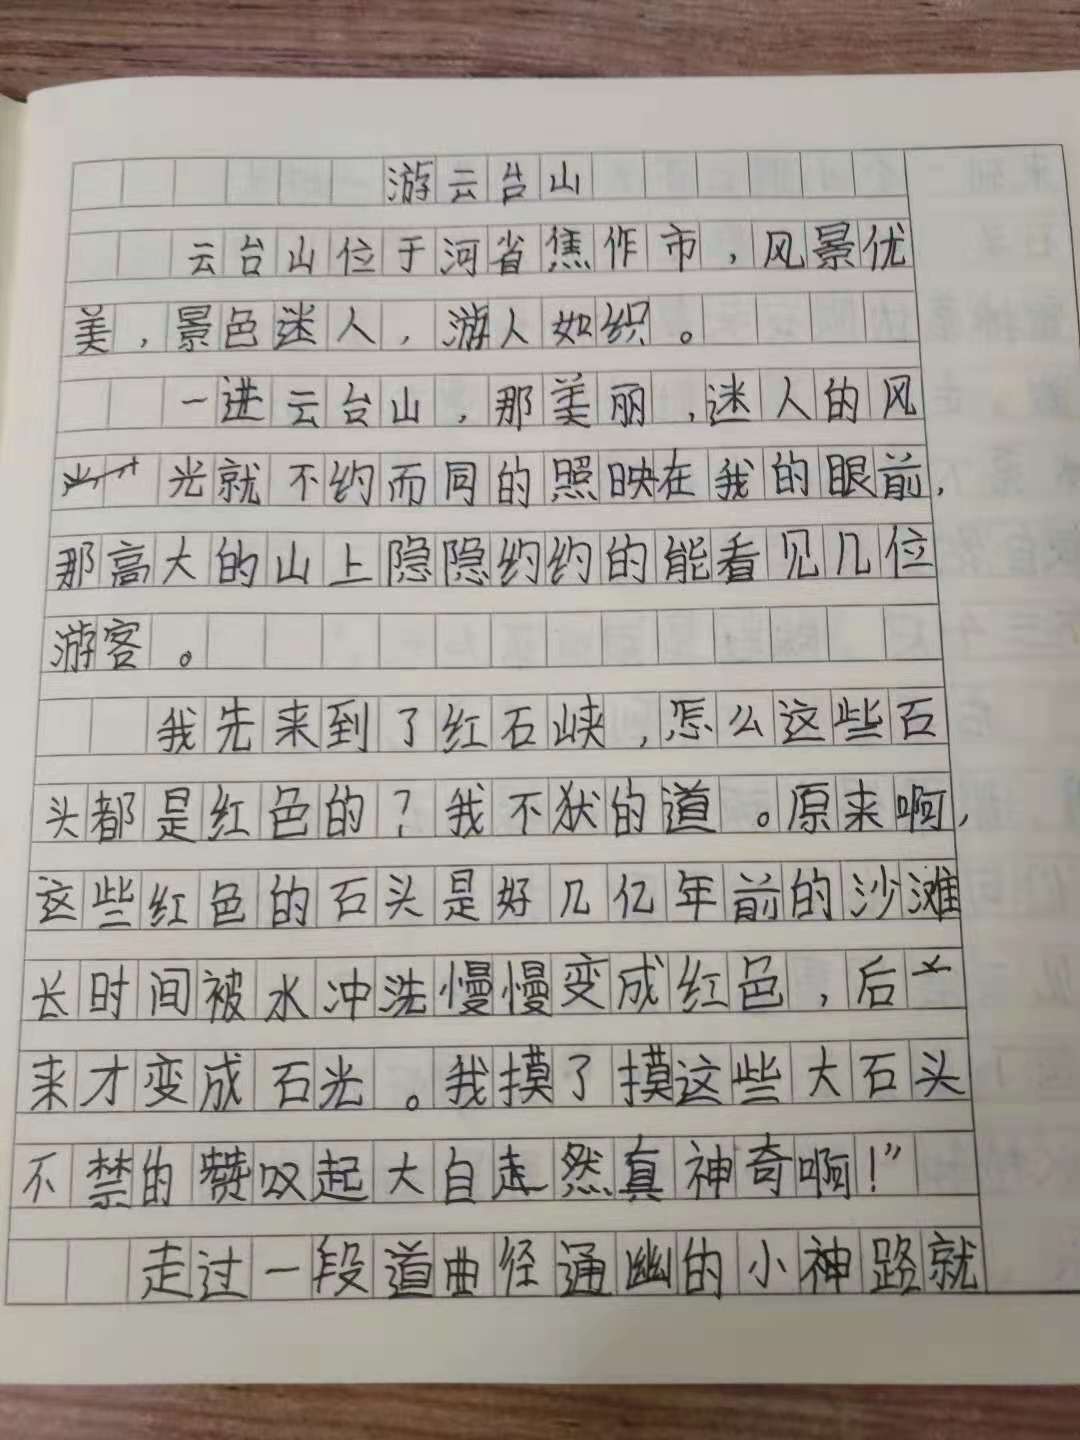 游云台山
云台山位于河省焦作市，风景优
美，景色迷人，游人如织。
一进云台山，那美丽，迷人的风
光就不约而同的照映在我的眼前，
那高大的山上隐隐约约的能看见几位
游客。
我先来到了红石峡，怎么这些石
头都是红色的？我不狱的道。原来啊，
这些红色的石头是好几亿年前的沙滩
长时间被水冲洗慢慢变成红色，后
来才变成石光。我摸了摸这些大石头
不禁的赞叹起大自然真神奇啊！”
走过一段道曲径通幽的小神路就